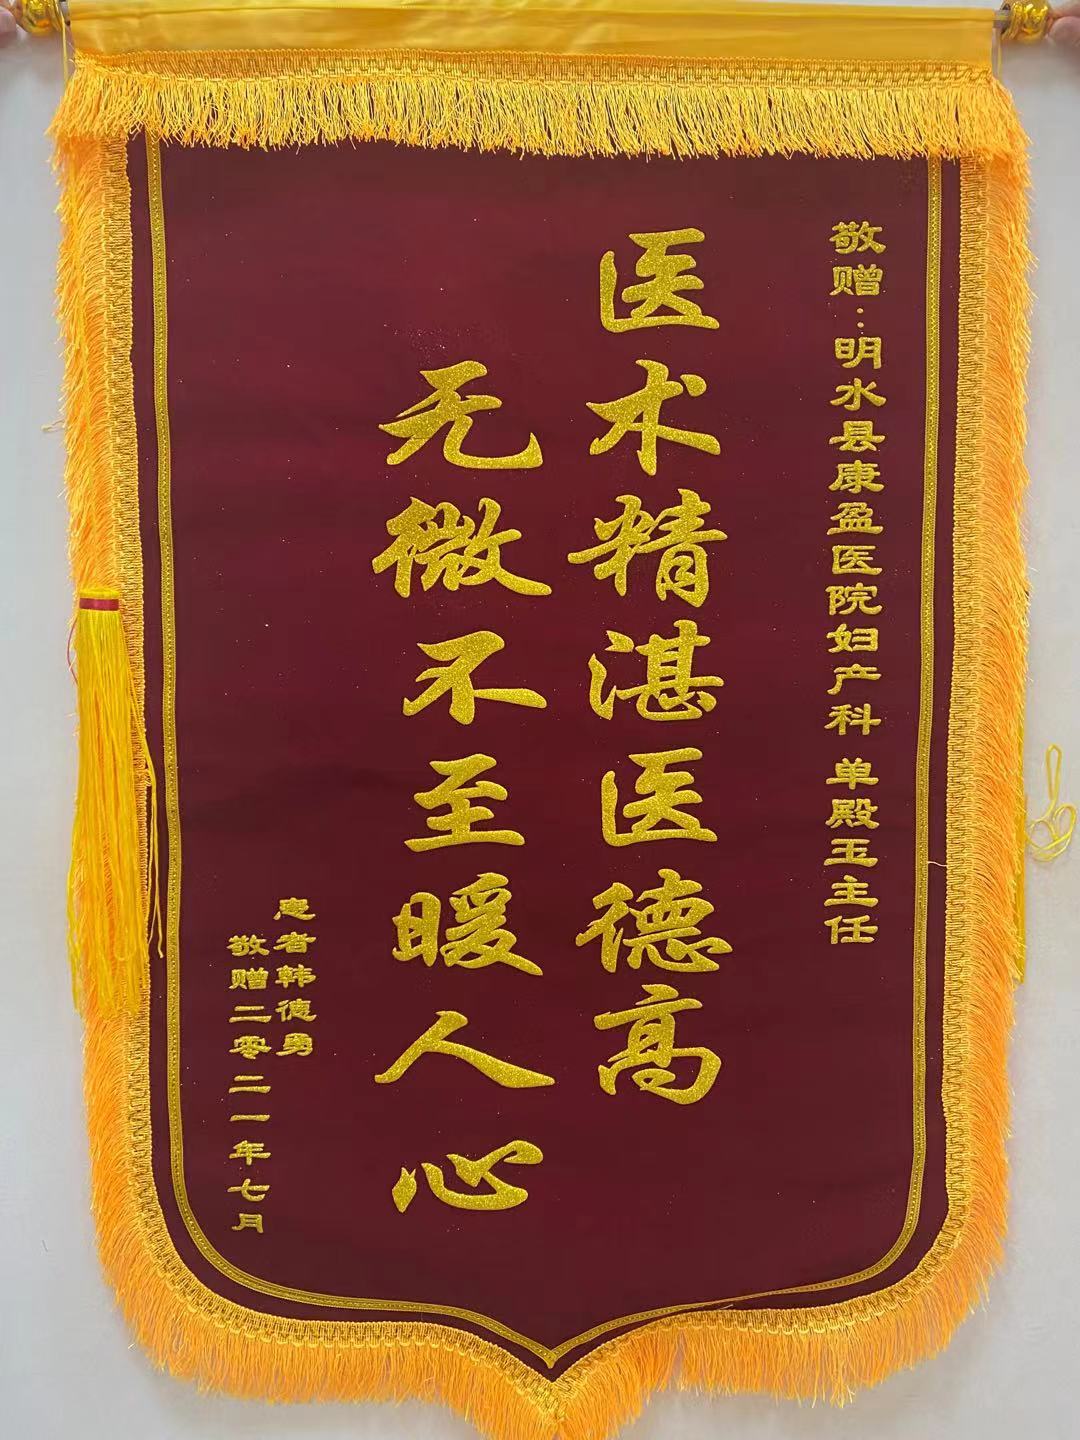 敬赠：明水县康盈医院妇产科 单殿玉主任
医术精湛医德高
无微不至暖人心
患者韩德勇
敬赠二零二一年七月